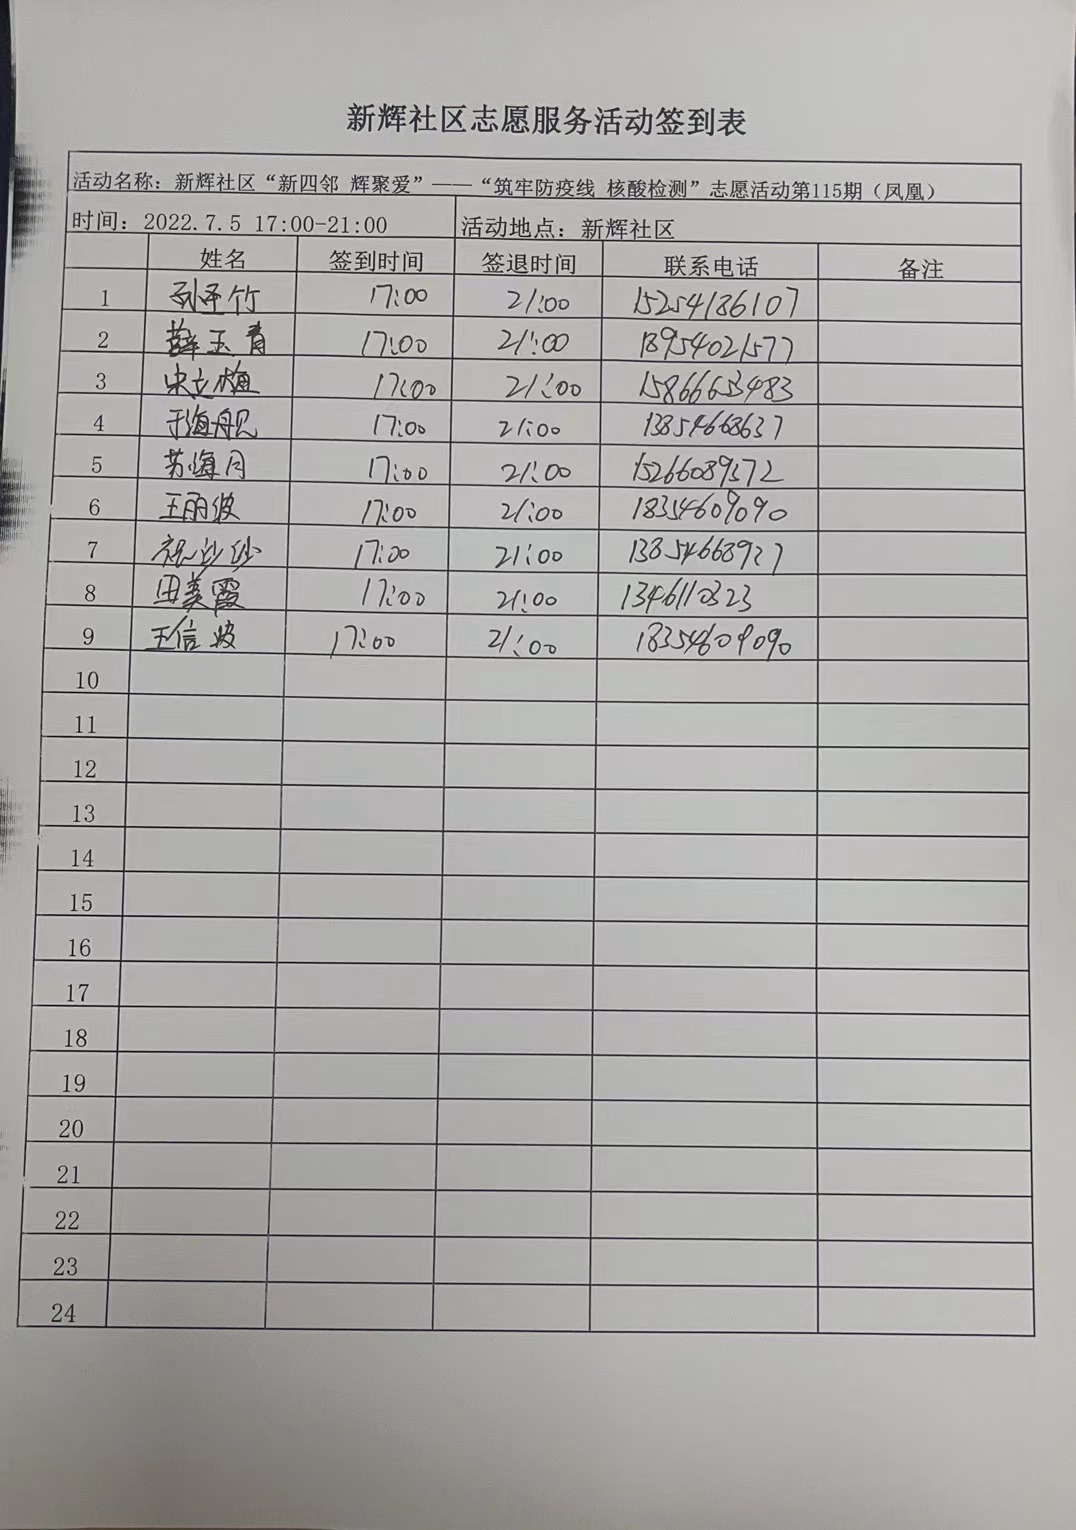 新辉社区志愿服务活动签到表
活动名称：新辉社区“新四邻 辉聚爱”——“筑牢防疫线 核酸检测”志愿活动第115期（凤凰）
时间：2022.7.5 17:00-21:00 活动地点：新辉社区
姓名 签到时间 签退时间 联系电话 备注
1 17:00 21:00 15254186107
2 薛玉青 17:00 21:00 18954021577
3 宋立梅 17:00 21:00 15866653483
4 于海舰 17:00 21:00 13854668637
5 苏海月 17:00 21:00 15266089372
6 王丽波 17:00 21:00 18354609090
7 祝沙沙 17:00 21:00 13854668927
8 田美霞 17:00 21:00 1346110323
9 王信波 17:00 21:00 18354609090
10
11
12
13
14
15
16
17
18
19
20
21
22
23
24